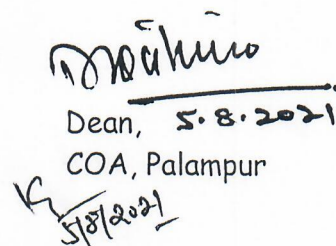 Dean, 5.8.2021
COA, Palampur
5/8/2021